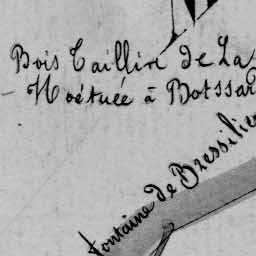 Bois Taillin de La
Moëtuée à Botssar
Fontaine de Bressilien